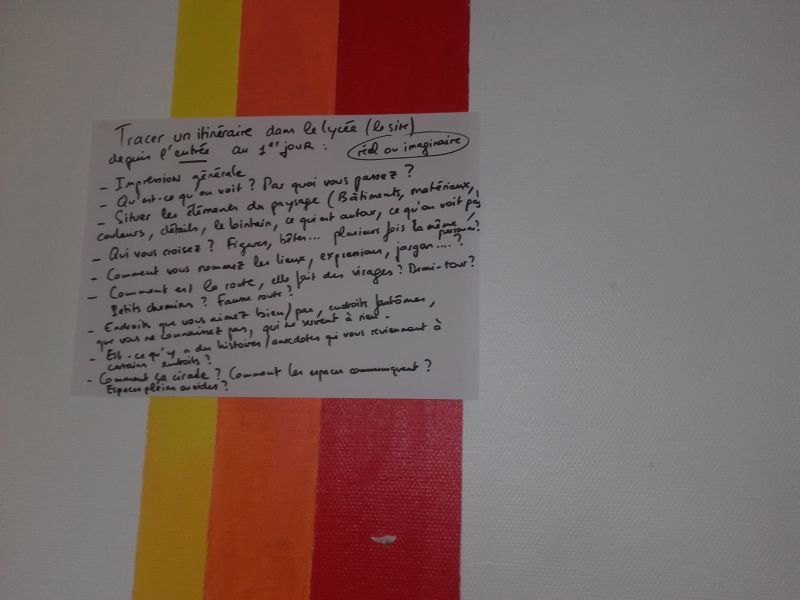 Tracer un itinéraire dans le lycée (le site)
depuis l'entrée au 1er jour : réel ou imaginaire
- Impression générale
- Qu'est-ce qu'on voit ? Par quoi vous passez ?
- Situer les éléments du paysage (Bâtiments, matériaux,
couleurs, détails, le lointain, ce qui est autour, ce qu'on voit pas)
- Qui vous croisez ? Figures, bêtes... plusieurs fois la même / personne ?
- Comment vous nommez les lieux, expressions, jargon .... ?
- Comment est la route, elle fait des virages ? Demi-tour ?
Petits chemins ? Fausse route ?
- Endroits que vous aimez bien / pas, endroits fantômes,
que vous ne connaissez pas, qui ne servent à rien.
- Est-ce qu'y a des histoires / anecdotes qui vous reviennent à
certains endroits ?
- Comment ça circule ? Comment les espaces communiquent ?
Espaces pleins ou vides ?